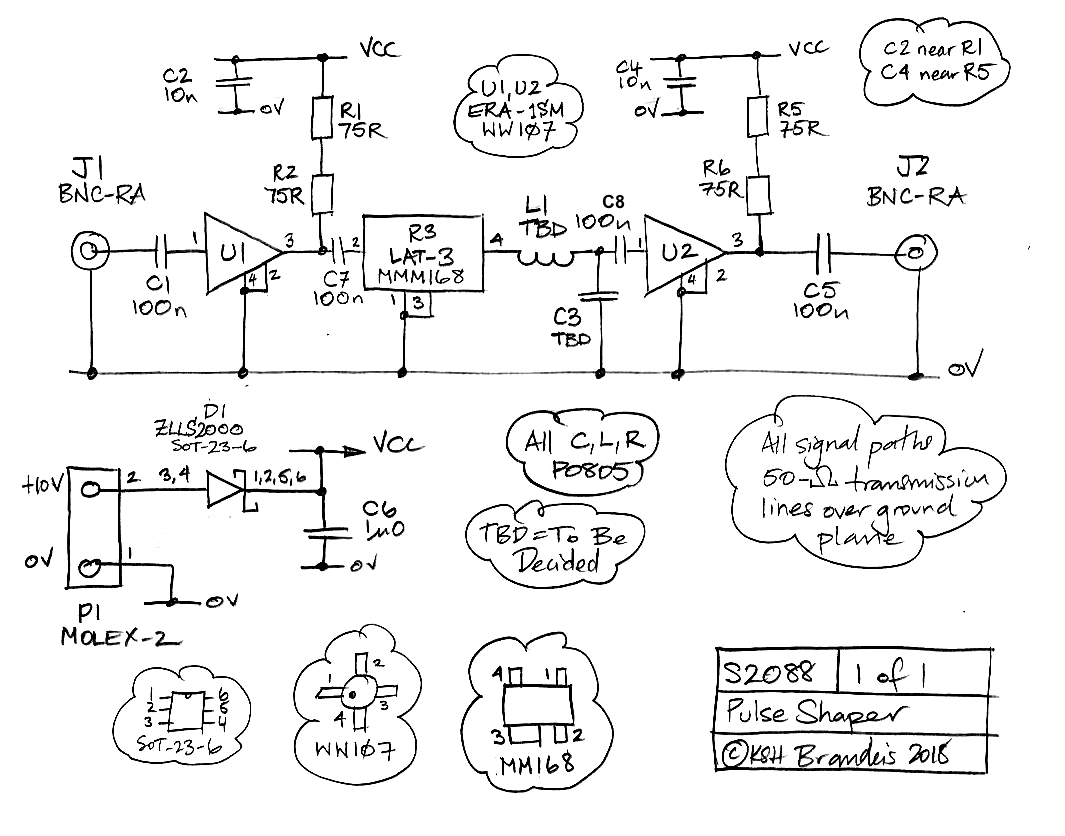 VCC
C2
10n
0V
R1
75R
R2
75R
U1,U2
ERA-1SM
WW107
C4
10n
0V
VCC
R5
75R
R6
75R
C2 near R1
C4 near R5
J1
BNC-RA
J2
BNC-RA
C1
100n
1
U1
3
4
2
C7
100n
2
R3
LAT-3
MMM168
4
1
3
L1
TBD
C8
100n
C3
TBD
1
U2
3
4
2
C5
100n
0V
D1
ZLLS2000
SOT-23-6
+10V
2
3,4
1,2,5,6
VCC
C6
1u0
0V
0V
1
0V
P1
MOLEX-2
All C,L,R
P0805
TBD=To Be
Decided
All signal paths
50-Ω transmission
lines over ground
plane
1
2
3
6
5
4
SOT-23-6
1
2
3
4
WW107
4
1
3
2
MM168
S2088
1 of 1
Pulse Shaper
©KSH Brandeis 2018